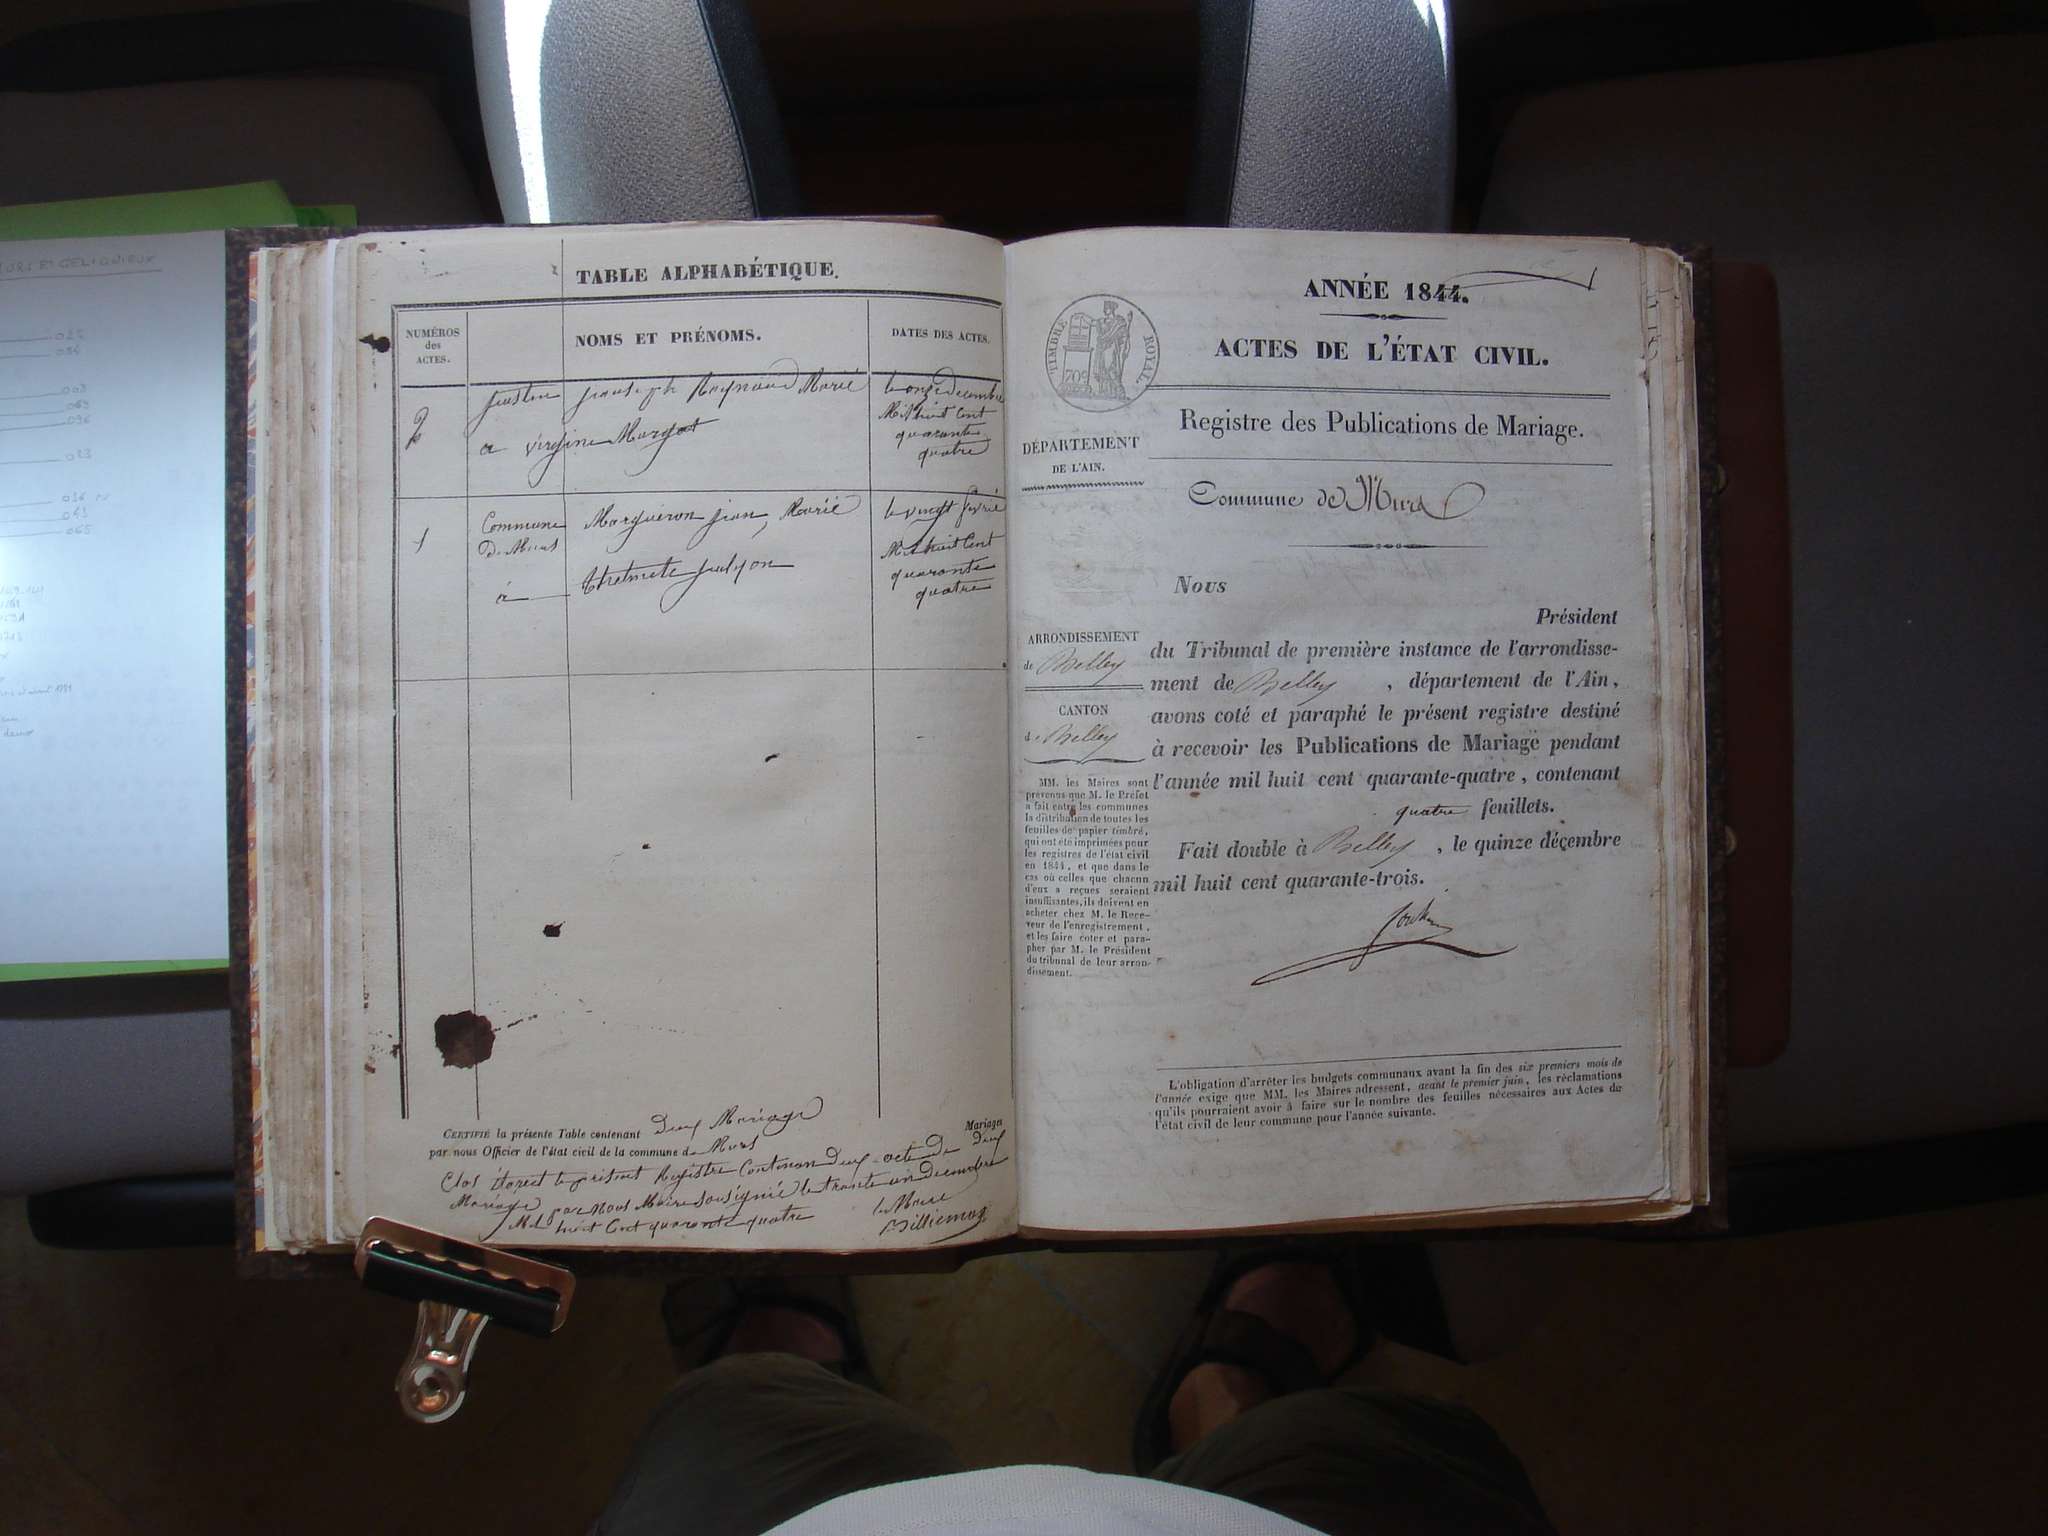 MURS ET GELIGNIEUX
TABLE ALPHABÉTIQUE.
NUMÉROS
des
ACTES.
NOMS ET PRÉNOMS.
DATES DES ACTES.
2
Reynaud Marié
a virgine Margot
le onze decembre
Mil huit Cent
quarante
quatre
1
Commune
De Murs
Marguéron jean, Marié
à
le vingt
Mil huit Cent
quarante
quatre
CERTIFIÉ la présente Table contenant Deux Mariage
Mariages
par nous Officier de l'état civil de la commune de Murs
Clos le present Registre Deux acte De Deux
Mariage par Nous Maire le trante un Decembre
Mil huit Cent quarante quatre
le Maire
Billiemaz
ANNÉE 1844.
ACTES DE L'ÉTAT CIVIL.
TIMBRE ROYAL.
70c
Registre des Publications de Mariage.
DÉPARTEMENT
DE L'AIN.
Commune de Murs
Nous
Président
du Tribunal de première instance de l'arrondisse-
ment de Belley, département de l'Ain,
avons coté et paraphé le présent registre destiné
à recevoir les Publications de Mariage pendant
l'année mil huit cent quarante-quatre, contenant
quatre feuillets.
Fait double à Belley, le quinze décembre
mil huit cent quarante-trois.
ARRONDISSEMENT
de Belley
CANTON
de Belley
MM. les Maires sont
prévenus que M. le Préfet
a fait entre les communes
la distribution de toutes les
feuilles de papier timbré,
qui ont été imprimées pour
les registres de l'état civil
en 1844, et que dans le
cas où celles que chacun
d'eux a reçues seraient
insuffisantes, ils doivent en
acheter chez M. le Rece-
veur de l'enregistrement,
et les faire coter et para-
pher par M. le Président
du tribunal de leur arron-
dissement.
L'obligation d'arrêter les budgets communaux avant la fin des six premiers mois de
l'année exige que MM. les Maires adressent, avant le premier juin, les réclamations
qu'ils pourraient avoir à faire sur le nombre des feuilles nécessaires aux Actes de
l'état civil de leur commune pour l'année suivante.